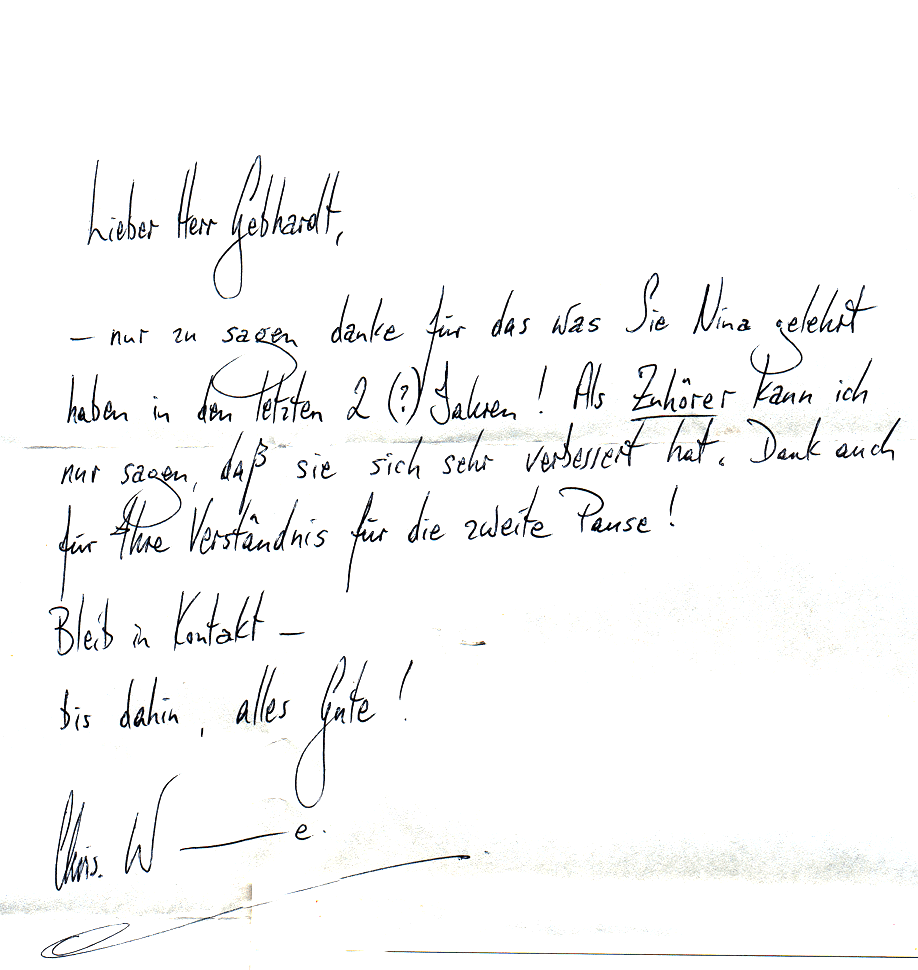 Lieber Herr Gebhardt,
– nur zu sagen danke für das was Sie Nina gelehrt
haben in den letzten 2 (?) Jahren! Als Zuhörer kann ich
nur sagen, daß sie sich sehr verbessert hat. Dank auch
für Ihre Verständnis für die zweite Pause!
Bleib in Kontakt –
bis dahin, alles Gute!
Chris. W——e.